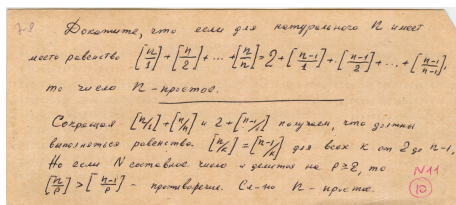 7-8
Докажите, что если для натурального n имеет
место равенство [n/1]+[n/2]+...+[n/n]=2+[n-1/1]+[n-1/2]+...+[n-1/n-1],
то число n-простое.
Сокращая [n/1]+[n/n] и 2+[n-1/1] получаем, что должны
выполняться равенства [n/k]=[n-1/k] для всех k от 2 до n-1,
Но если N составное число и делится на p≥2, то
[n/p]>[n-1/p] - противоречие. Сл-но n-простое.
N11
10